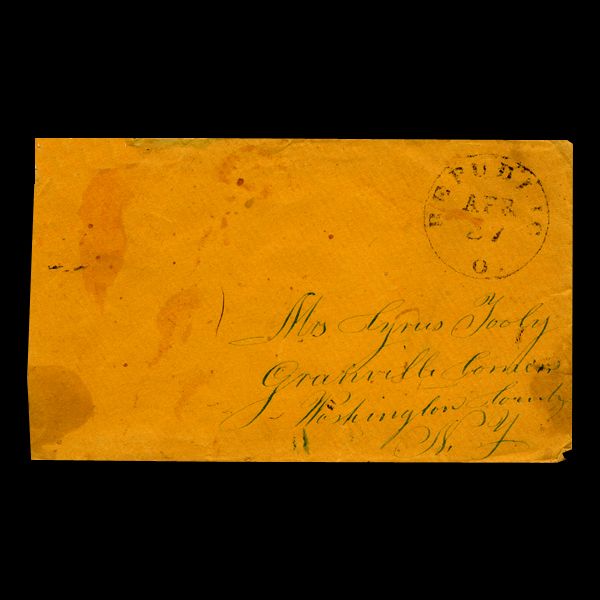 REPUBLIC
APR
27
O.
Mrs Cyrus Tooly
Granville Corners
Washington County
N. Y